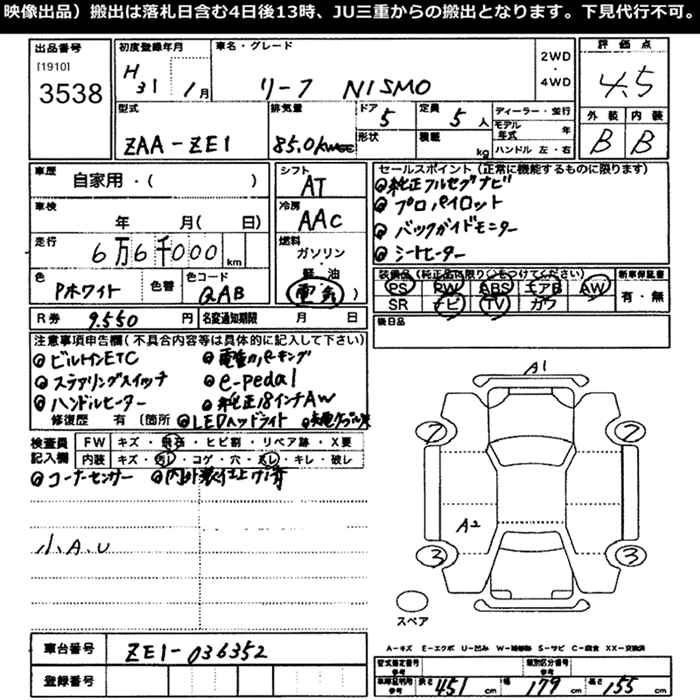 映像出品）搬出は落札日含む4日後13時、JU三重からの搬出となります。下見代行不可。
出品番号
[1910]
3538
初度登録年月
H31 1月
車名・グレード
リーフ NISMO
2WD
・
4WD
評価点
4.5
外装 内装
B B
型式
ZAA-ZE1
排気量
85.0kw
ドア
5
形状
定員
5人
積載
kg
ディーラー・並行
モデル年式 年
ハンドル 左・右
車歴
自家用・( )
車検
年 月( 日)
走行
6万6千000km
色
Pホワイト
色替
色コード
QAB
シフト
AT
冷房
AAC
燃料
ガソリン
軽油
電気 )
セールスポイント(正常に機能するものに限ります)
純正フルセグナビ
プロパイロット
バックガイドモニター
シートヒーター
装備品(純正品に限り○をつけてください)
PS PW ABS エアB AW
SR ナビ TV カワ
新車保証書
有・無
後日品
R券 9,550円 名変通知期限 月 日
注意事項申告欄(不具合内容等は具体的に記入して下さい)
ビルトインETC
電動パーキング
ステアリングスイッチ
e-pedal
ハンドルヒーター
純正18インチAW
修復歴 有 〔箇所
LEDヘッドライト
検査員記入欄
FW キズ・飛石・ヒビ割・リペア跡・X要
内装 キズ・汚レ・コゲ・穴・スレ・キレ・破レ
コーナーセンサー
内外装仕上げ済
小A.U
A1
7 7
A2
3 3
スペア
A−キズ E−エクボ U−凹み W−補修跡 S−サビ C−腐食 XX−交換済
車台番号
ZE1-036352
登録番号
型式指定番号
参考
類別区分番号
参考
車庫証明用
参考
長さ 451 cm
幅 179 cm
高さ 155 cm